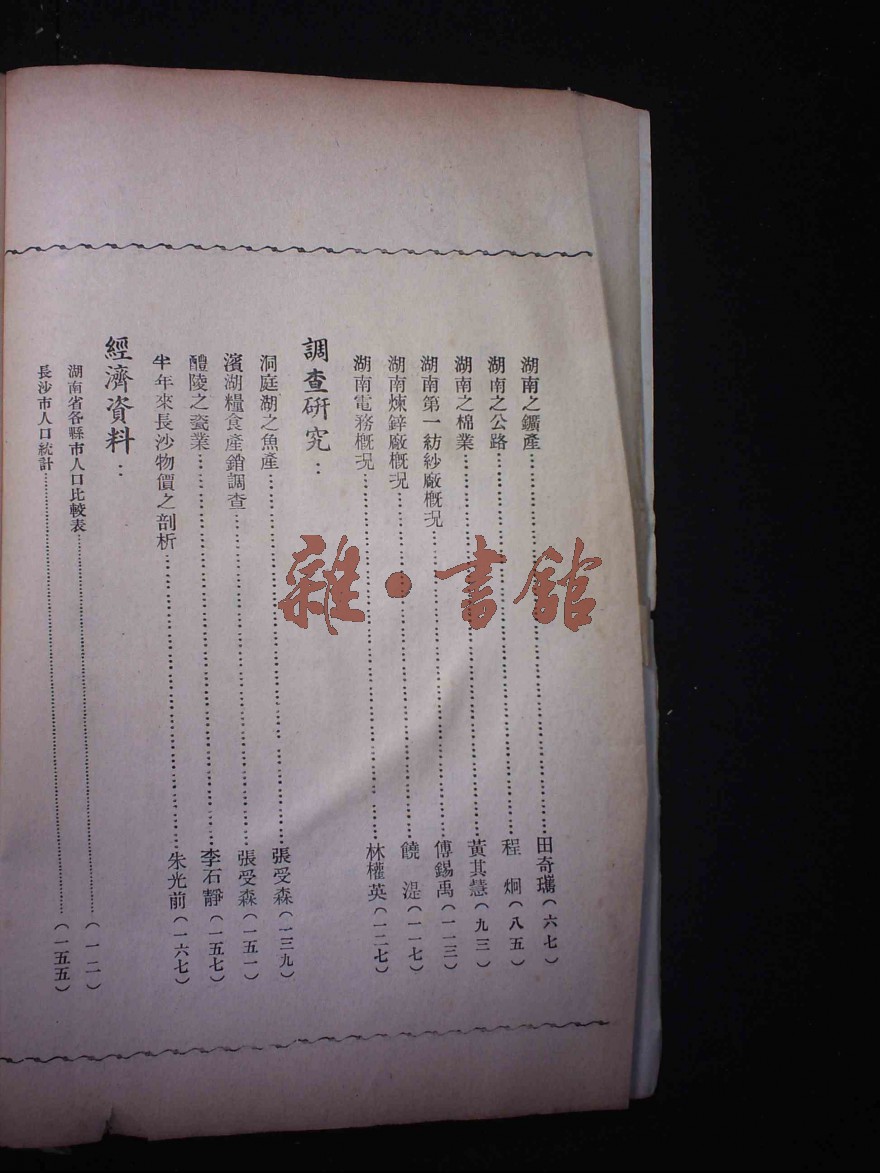 湖南之鑛產……田奇㻪（六七）
湖南之公路……程　炯（八五）
湖南之棉業……黃其慧（九三）
湖南第一紡紗廠概况……傅錫禹（一一三）
湖南煉鋅廠概况……饒　湜（一一七）
湖南電務概况……林權英（一二七）
調查研究：
洞庭湖之魚產……張受森（一三九）
濱湖糧食產銷調查……張受森（一五一）
醴陵之瓷業……李石靜（一五七）
半年來長沙物價之剖析……朱光前（一六七）
經濟資料：
湖南省各縣市人口比較表……（一二）
長沙市人口統計……（一五五）
雜·書館